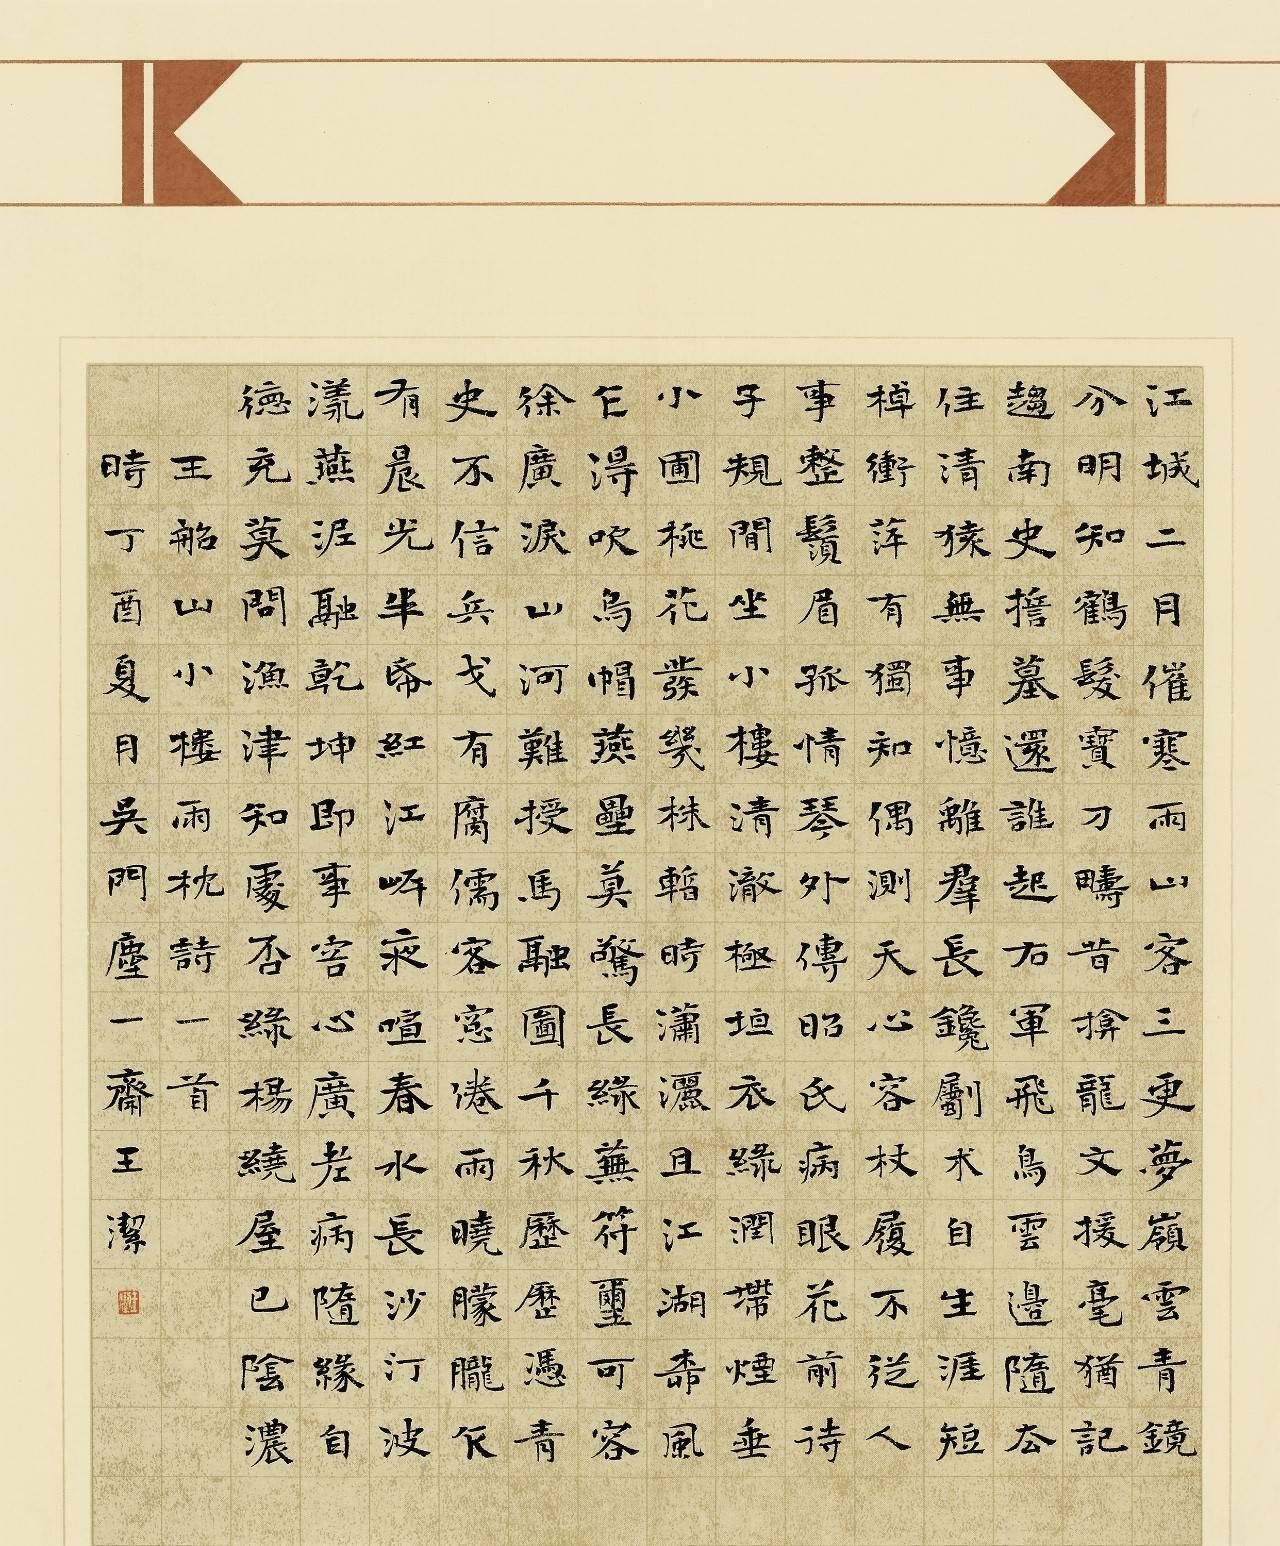 江城二月催寒雨山客三更夢嶺雲青鏡
分明知鶴髮寶刀疇昔揜龍文援毫猶記
趨南史擔墓還誰起右軍飛鳥雲邊隨去
住清猿無事憶離羣長鑱劚朮自生涯短
棹衝萍有獨知偶測天心容杖履不從人
事整鬚眉孤情琴外傳昭氏病眼花前待
子規閒坐小樓清澈極垣衣綠潤帶煙垂
小圃桃花發幾株暫時瀟灑且江湖風
乍得吹烏帽燕壘莫驚長綠蕪符璽可容
徐廣淚山河難授馬融圖千秋歷歷憑青
史不信兵戈有腐儒客窓倦雨曉朦朧
有晨光半帋紅江岸夜喧春水長沙汀波
漾燕泥融乾坤即事害心廣老病隨緣自
德充莫問漁津知處否綠楊繞屋已陰濃
王船山小樓雨枕詩一首
時丁酉夏月吳門塵一齋王潔